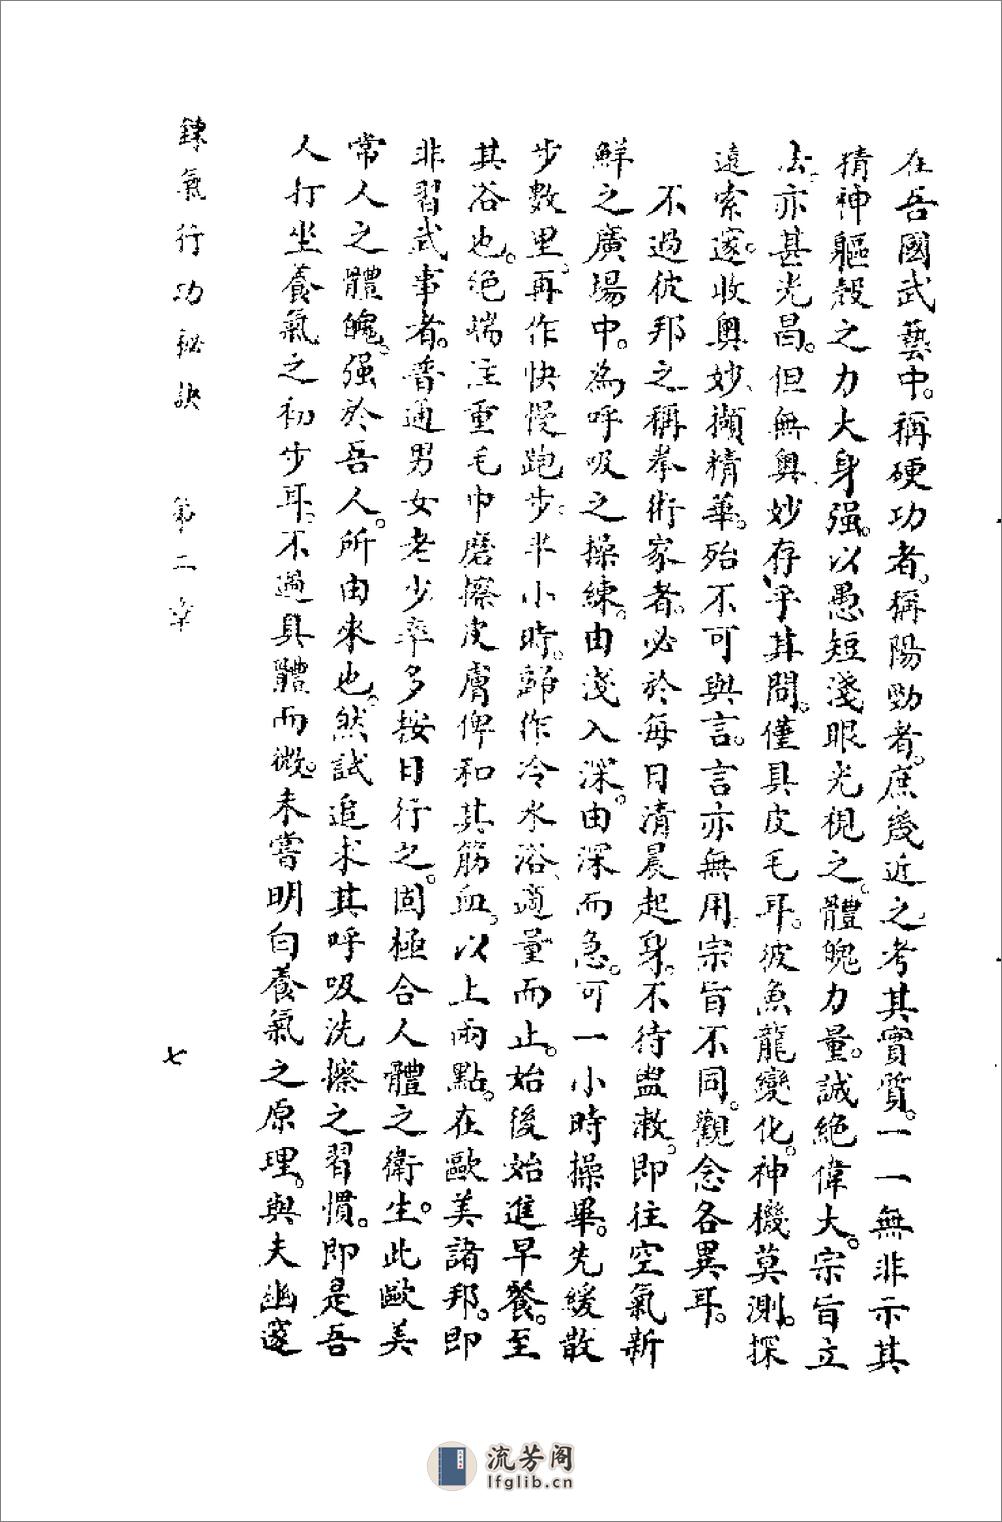 在吾國武藝中。稱硬功者。稱陽勁者。庶幾近之。考其實質。一一無非示其
精神軀殼之力大身强。以愚短淺眼光視之。體魄力量。誠絕偉大。宗旨立
法。亦甚光昌。但無奧妙存乎其間。僅具皮毛耳。彼魚龍變化。神機莫測。探
遠索邃。收奧妙、擷精華。殆不可與言。言亦無用。宗旨不同。觀念各異耳。
不過彼邦之稱拳術家者。必於每日清晨起身。不待盥漱。即往空氣新
鮮之廣場中。為呼吸之操練。由淺入深。由深而急。可一小時操畢。先緩散
步數里。再作快慢跑步。半小時。歸作冷水浴、適量而止。始後始進早餐。至
其浴也。絕端注重毛巾磨擦皮膚俾和其筋血。以上兩點。在歐美諸邦。即
非習武事者。普通男女老少率多按日行之。固極合人體之衛生。此歐美
常人之體魄。强於吾人。所由來也。然試追求其呼吸洗擦之習慣。即是吾
人打坐養氣之初步耳。不過具體而微。未嘗明白養氣之原理。與夫幽邃
鍊氣行功秘訣 第二章 七
流芳阁
lfglib.cn